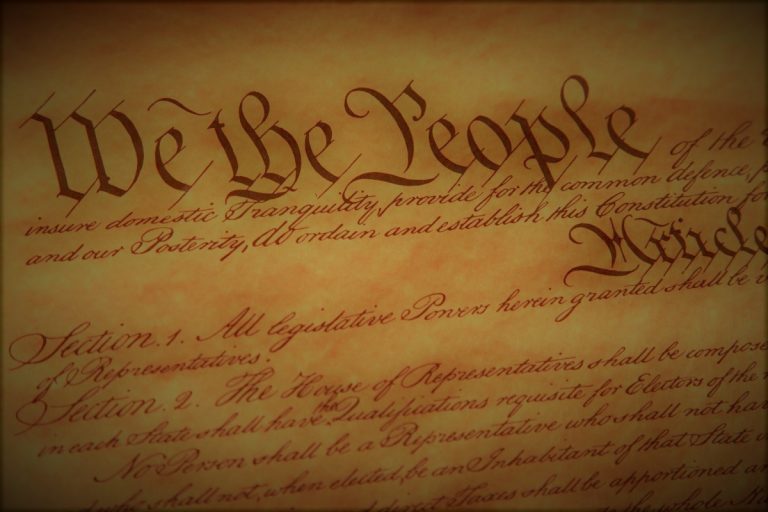 We the People of the
insure domestic Tranquility, provide for the common defence,
and our Posterity, do ordain and establish this Constitution for
Article
Section. 1. All legislative Powers herein granted shall be
of Representatives.
Section. 2. The House of Representatives shall be
in each State shall have the Qualifications requisite for Electors of the
No Person shall be a Representative who shall not
who shall not, when elected, be an Inhabitant of that State
direct Taxes shall be apportioned
the whole